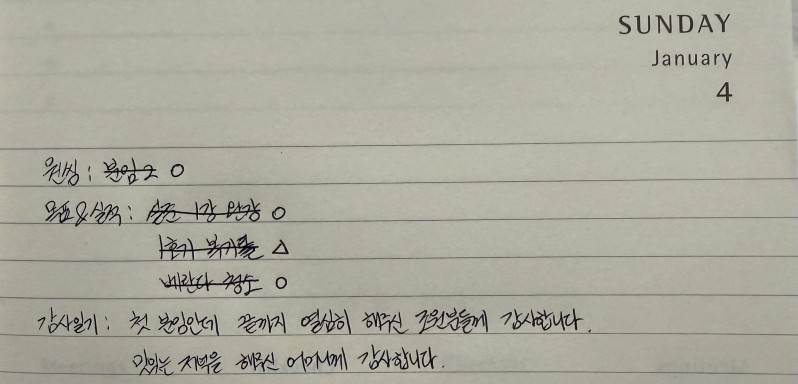 SUNDAY
January
4
원씽 : 분임 2 O
목표&실적 : 실존 1강 완강 O
복기 △
베란다 청소 O
감사일기 : 첫 분임인데 끝까지 열심히 해주신 조원분들께 감사합니다.
맛있는 저녁을 해주신 어머니께 감사합니다.